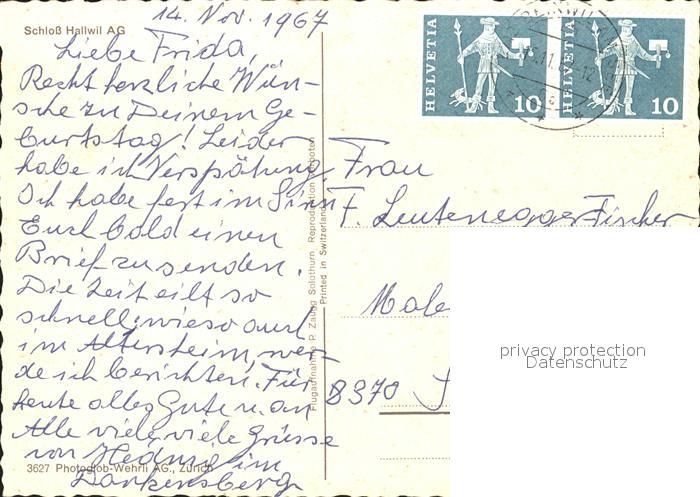 14. Nov. 1967
Schloß Hallwil AG
Liebe Frida,
Recht herzliche Wün-
sche zu Deinem Ge-
burtstag! Leider
habe ich Verspätung.
Ich habe fest im Sinn
Euch bald einen
Brief zu senden.
Die Zeit eilt so
schnell; wieso auch
im Altersheim, wer-
de ich berichten! Für
heute alles Gute u. an
Alle viele, viele Grüsse
von Hedwig im
3627 Photoglob-Wehrli AG., Zürich
Flugaufnahme P. Zaugg Solothurn Reproduktion verboten
Printed in Switzerland
HELVETIA 10
HELVETIA 10
Frau
F. Leutenegger-Fischer
Male
8370
privacy protection
Datenschutz